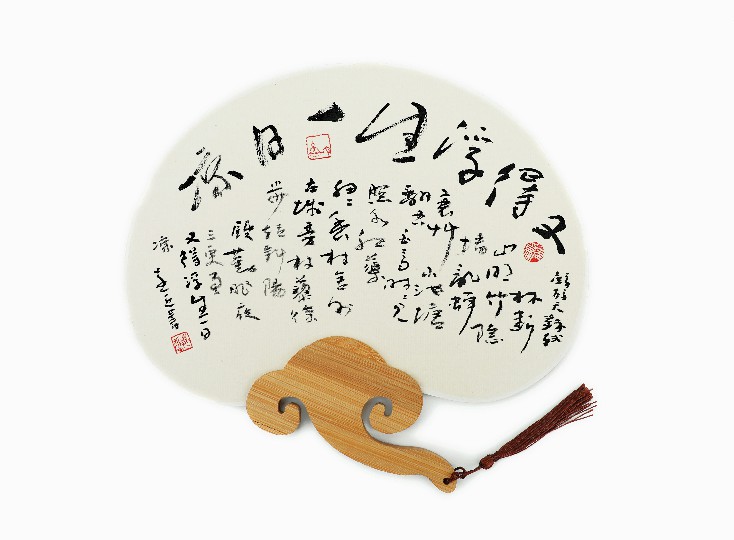 又得浮生一日凉
鹧鸪天 苏轼
林断
山明竹隐
墙乱蝉
衰草小池塘
翻空白鸟时时见
照水红蕖细
细香村舍外
古城旁杖藜徐
步转斜阳
殷勤昨夜
三更雨
又得浮生一日
凉